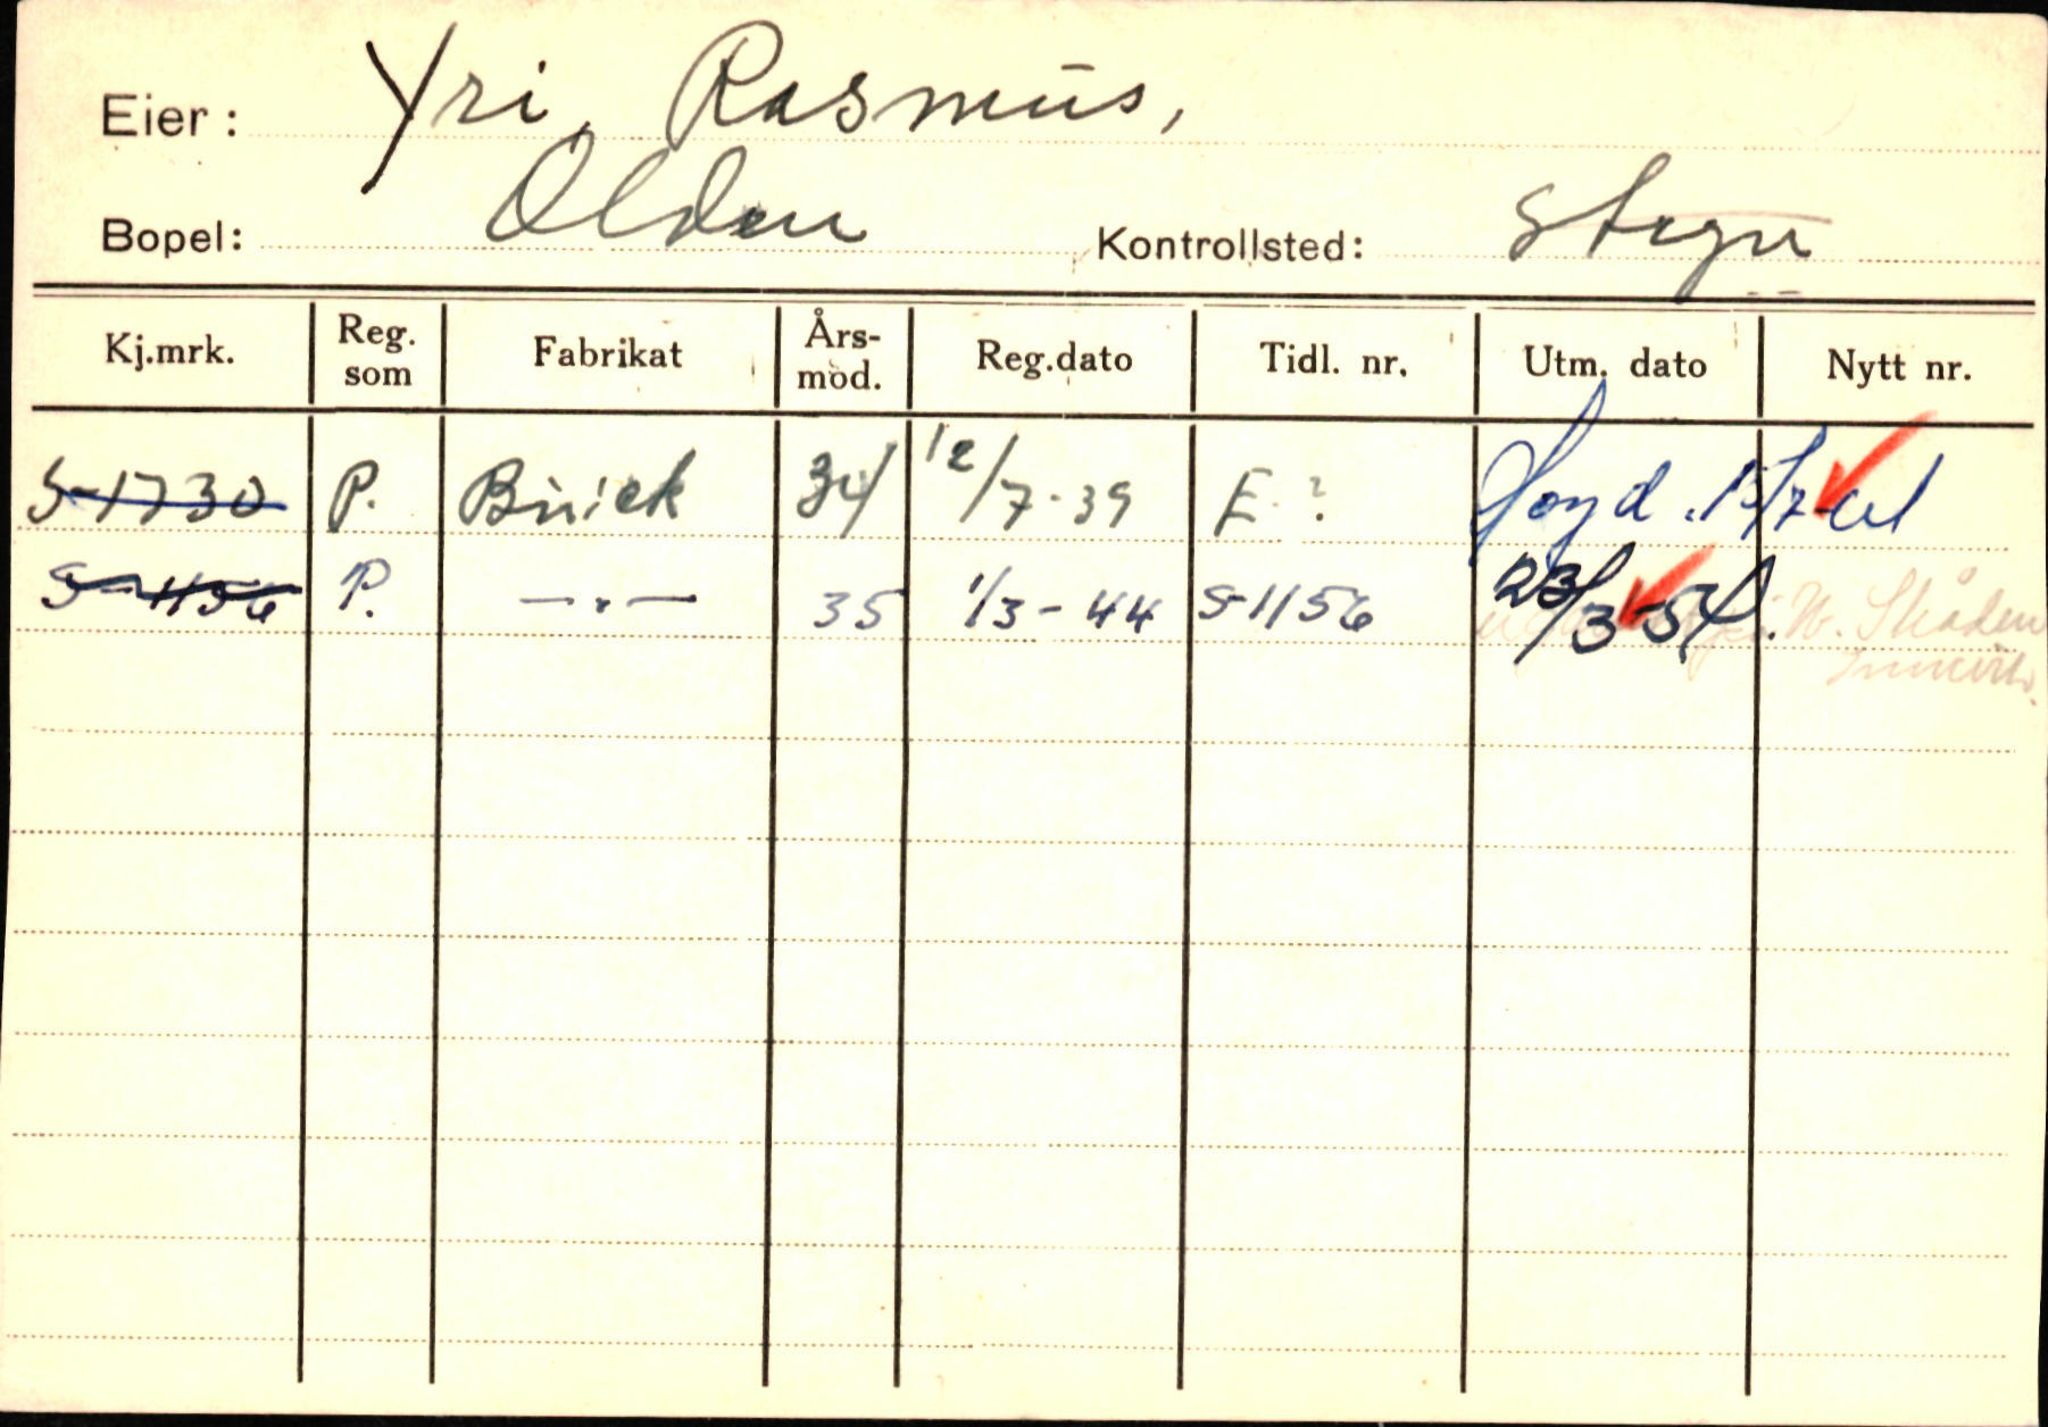 Eier: Yri, Rasmus,
Bopel: Olden Kontrollsted: Stryn
Kj.mrk. Reg. som Fabrikat Års-mod. Reg.dato Tidl. nr. Utm. dato Nytt nr.
S-1730 P. Buick 34 12/7-39 E-?
S-1156 P. —"— 35 1/3-44 S-1156 23/3-54. N. Skåden